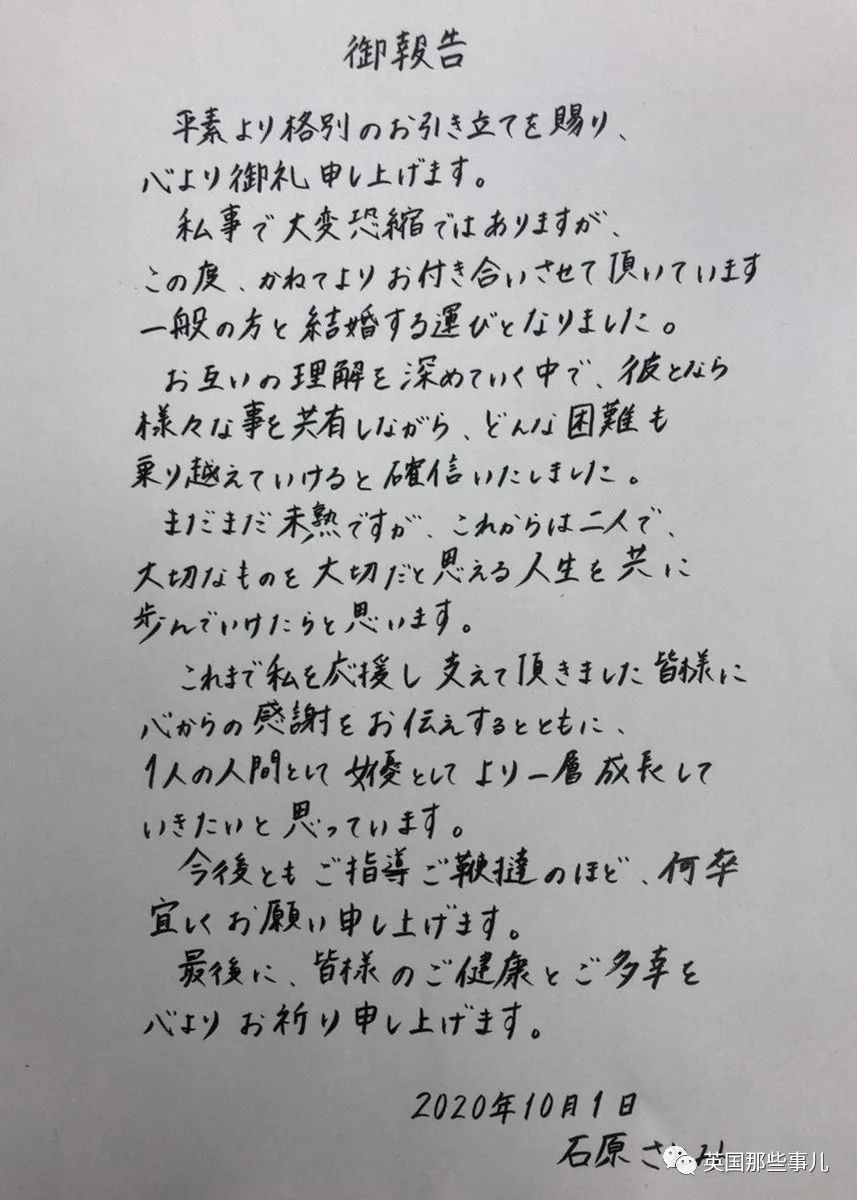 御報告
平素より格別のお引き立てを賜り、
心より御礼申し上げます。
私事で大変恐縮ではありますが、
この度、かねてよりお付き合いさせて頂いています
一般の方と結婚する運びとなりました。
お互いの理解を深めていく中で、彼となら
様々な事を共有しながら、どんな困難も
乗り越えていけると確信いたしました。
まだまだ未熟ですが、これからは二人で、
大切なものを大切だと思える人生を共に
歩んでいけたらと思います。
これまで私を応援し支えて頂きました皆様に
心からの感謝をお伝えするとともに、
1人の人間として女優としてより一層成長して
いきたいと思っています。
今後ともご指導ご鞭撻のほど、何卒
宜しくお願い申し上げます。
最後に、皆様のご健康とご多幸を
心よりお祈り申し上げます。
2020年10月1日
石原さとみ
英国那些事儿